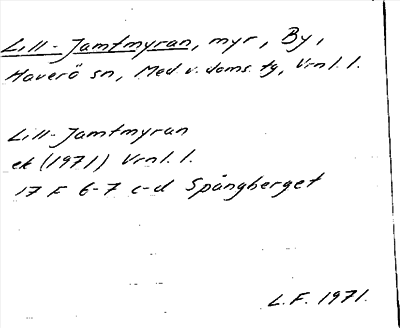 Lill-Jamtmyran, myr, By,
Haverö sn, Med. v. doms. tg, Vrnl. l.
Lill-Jamtmyran
ek (1971) Vrnl. l.
17 F 6-7 c-d Spångberget
L.F. 1971.